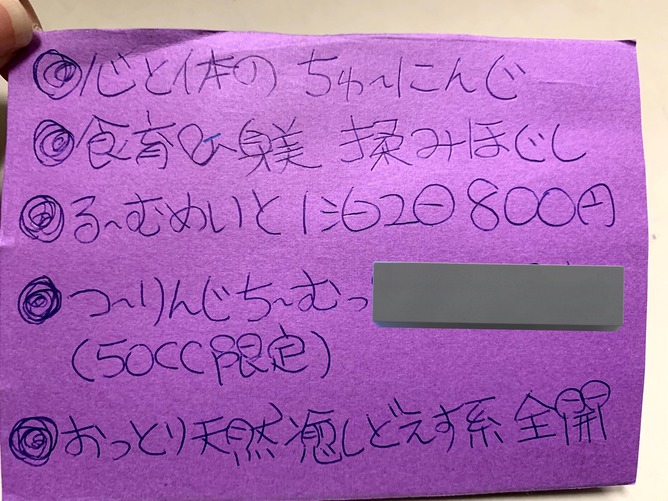 ◎心と体の ちゅ〜にんぐ
◎食育&身美 揉みほぐし
◎る〜むめいと 1泊2日800円
◎つ〜りんぐち〜むっ
(50CC限定)
◎おっとり天然癒しどえす系 全開